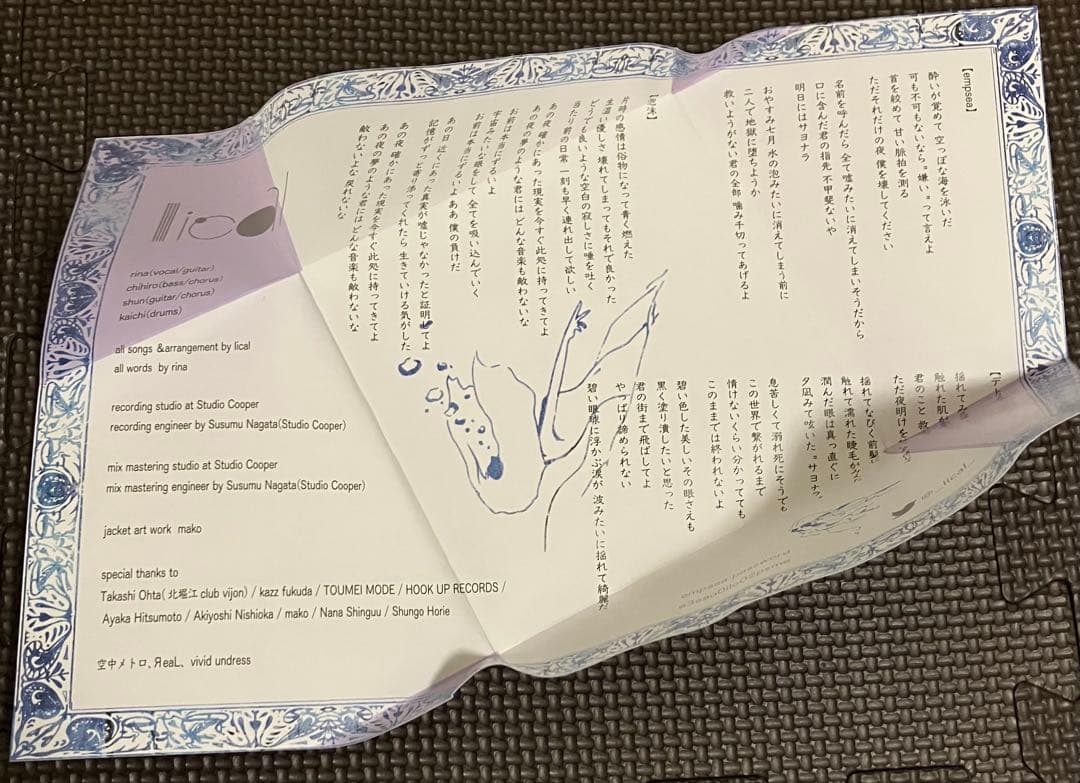 【empsea】
酔いが覚めて空っぽな海を泳いだ
可も不可もないなら"嫌い。"って言えよ
首を絞めて 甘い脈拍を測る
ただそれだけの夜、僕を壊してください
名前を呼んだら 全て嘘みたいに消えてしまいそうだから
口に含んだ君の指先 不甲斐ないや
明日にはサヨナラ
おやすみ七月 水の泡みたいに消えてしまう前に
二人で地獄に堕ちようか
救いようがない君の全部 噛み千切ってあげるよ
【泡沫】
片時の感情は俗物になって青く燃えた
生温い優しさ 壊れてしまってもそれで良かった
どうでも良いような空白の寂しさに唾を吐く
当たり前の日常 一刻も早く連れ出して欲しい
あの夜 確かにあった現実を今すぐ此処に持ってきてよ
あの夜の夢のような君にはどんな音楽も敵わないな
お前は本当にずるいよ
宇宙みたいな眼をして 全てを吸い込んでいく
お前は本当にずるいよ ああ 僕の負けだ
あの日 近くにあった真実が嘘じゃなかったと証明してよ
記憶がずっと寄り添ってくれたら 生きていける気がした
あの夜 確かにあった現実を今すぐ此処に持ってきてよ
あの夜の夢のような君にはどんな音楽も敵わないな
敵わないよな 戻れないな
揺れて
触れた肌
君のこと 救
ただ夜明けを
揺れてなびく前髪
触れて濡れた睫毛が
潤んだ眼は真っ直ぐに
夕凪みて呟いた"サヨナラ
息苦しくて溺れ死にそうでも
この世界で繋がれるまで
情けないくらい分かってても
このままでは終われないよ
碧い色した美しいその眼さえも
黒く塗り潰したいと思った
君の街まで飛ばしてよ
やっぱり諦められない
碧い眼球に浮かぶ涙が 波みたいに揺れて綺麗だ
lical
rina(vocal/guitar)
chihiro(bass/chorus)
shun(guitar/chorus)
kaichi(drums)
all songs &arrangement by lical
all words by rina
recording studio at Studio Cooper
recording engineer by Susumu Nagata(Studio Cooper)
mix mastering studio at Studio Cooper
mix mastering engineer by Susumu Nagata(Studio Cooper)
jacket art work mako
special thanks to
Takashi Ohta( 北堀江 club vijon) / kazz fukuda / TOUMEI MODE / HOOK UP RECORDS /
Ayaka Hitsumoto / Akiyoshi Nishioka / mako / Nana Shinguu / Shungo Horie
空中メトロ、ЯeaL、vivid undress
empsea password